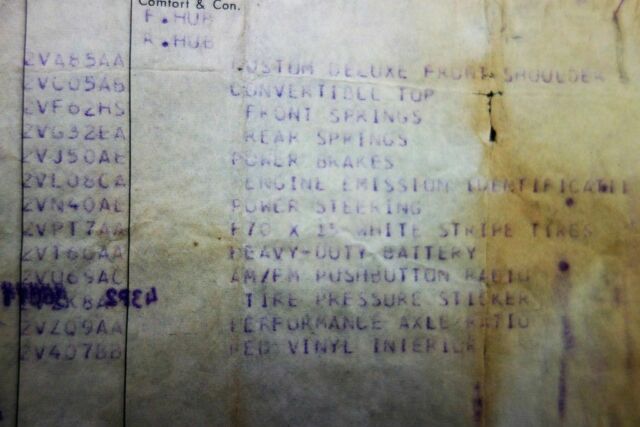 Comfort & Con.
F.HUB
R.HUB
2VA85AA CUSTOM DELUXE FRONT SHOULDER
2VC05AB CONVERTIBLE TOP
2VF62HS FRONT SPRINGS
2VG32EA REAR SPRINGS
2VJ50AE POWER BRAKES
2VL08CA ENGINE EMISSION IDENTIFICATI
2VN40AE POWER STEERING
2VPT7AA F70 X 15 WHITE STRIPE TIRES
2VT60AA HEAVY-DUTY BATTERY
2VU69AC AM/FM PUSHBUTTON RADIO
TIRE PRESSURE STICKER
2VZQ9AA PERFORMANCE AXLE RATIO
2V407BB RED VINYL INTERIOR